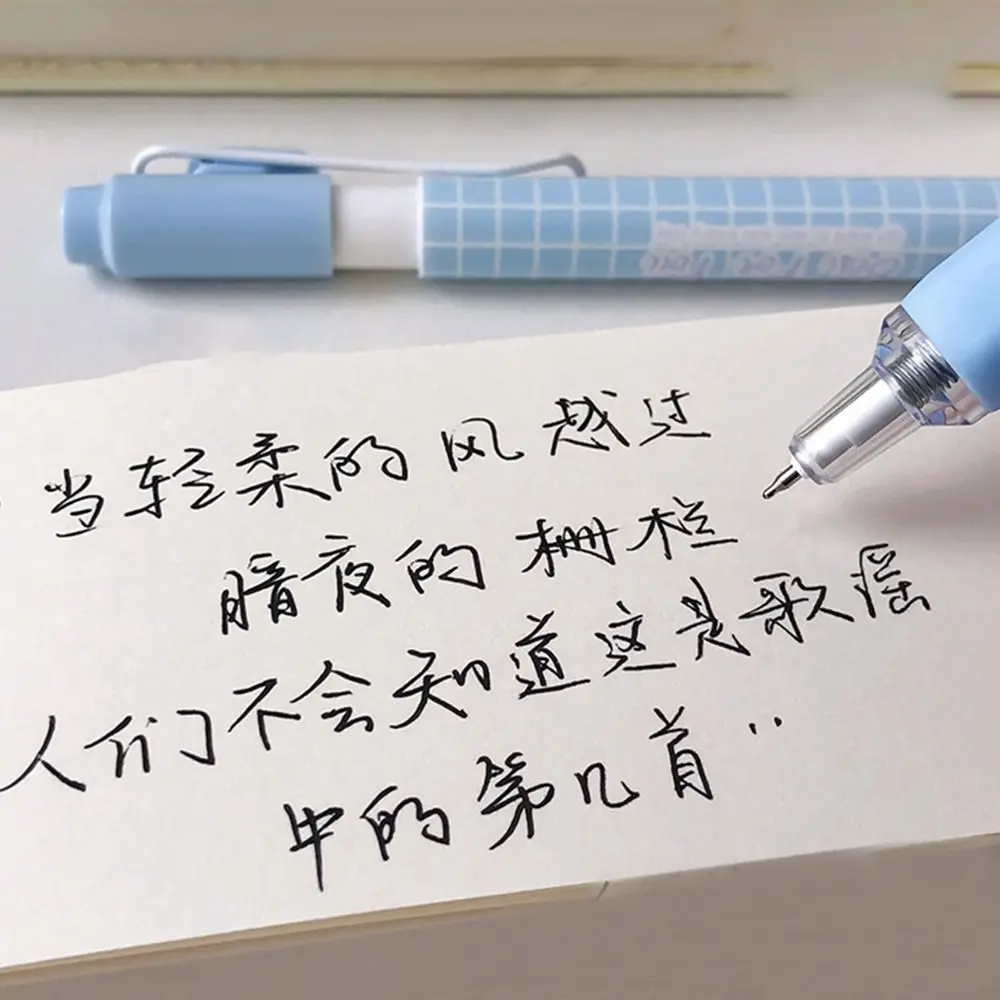 当轻柔的风越过
暗夜的栅栏
人们不会知道这是歌谣
中的第几首